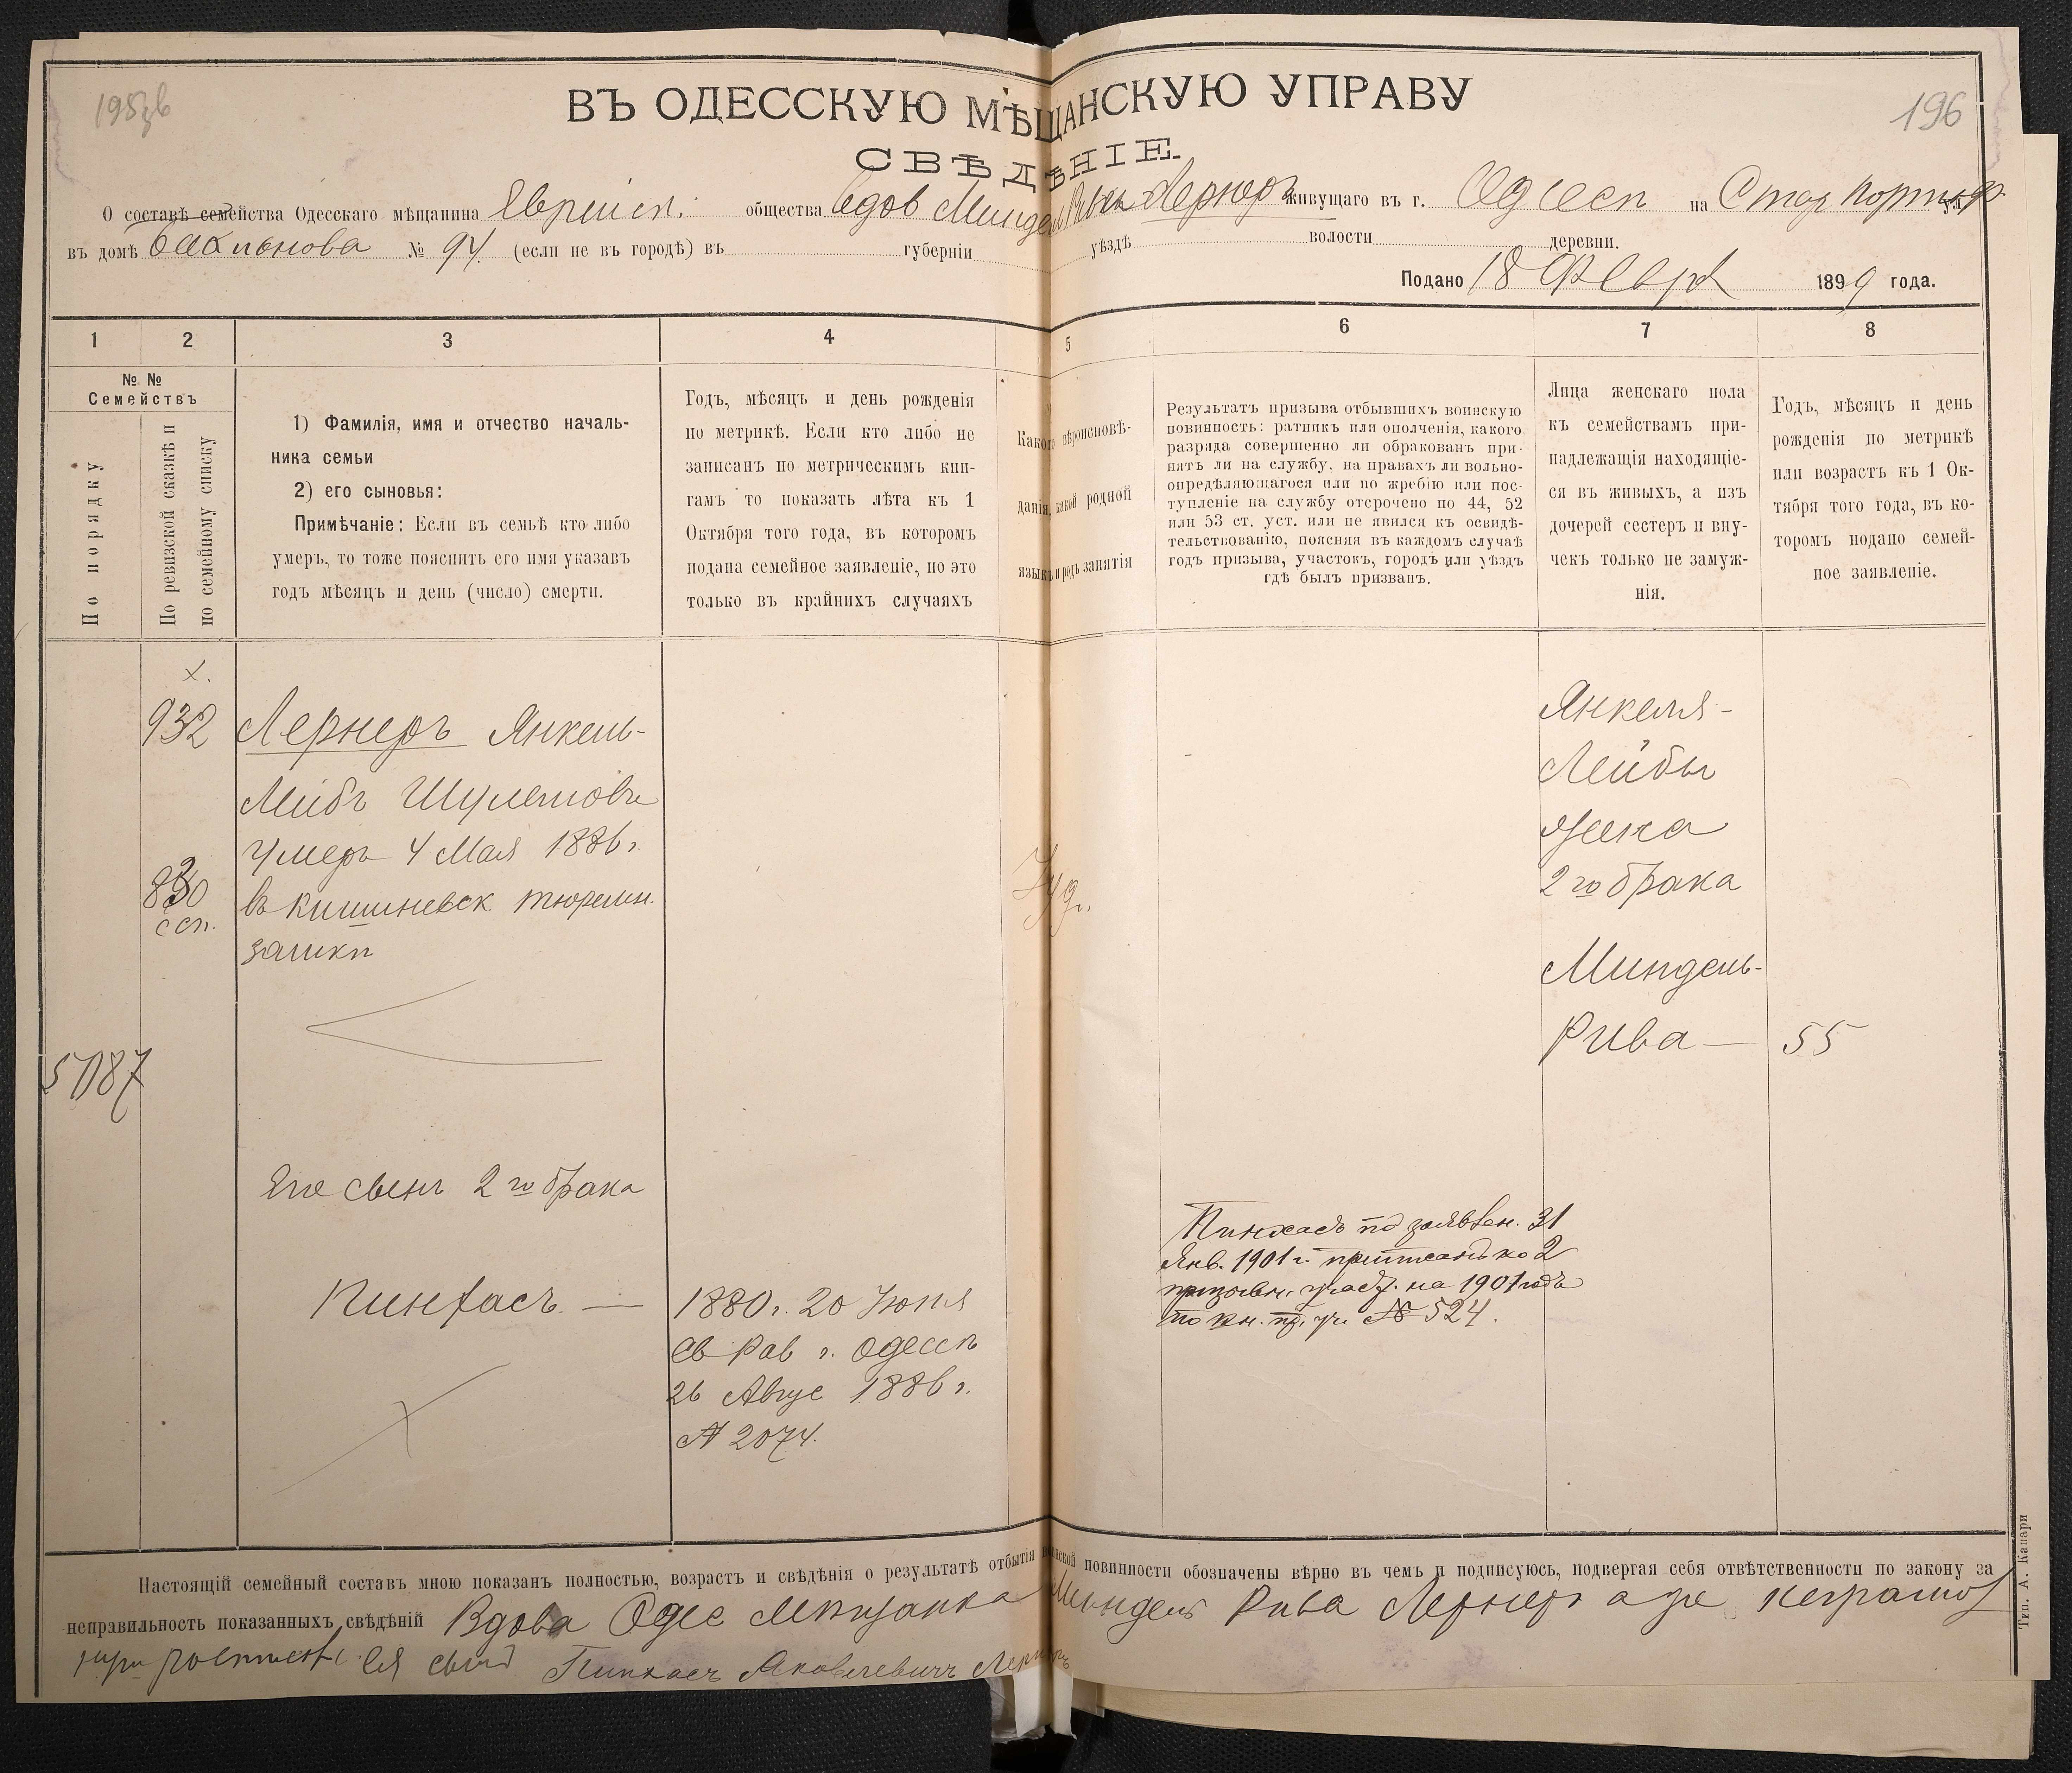 196
ВЪ ОДЕССКУЮ МѢЩАНСКУЮ УПРАВУ
СВѢДѢНІЕ
О составѣ семейства Одесскаго мѣщанина Еврейск. общества вдов Миндель Рива Лернеръ живущаго въ г. Одесѣ на Стар Портоф.
въ домѣ № 94. (если не въ городѣ) въ губерніи уѣздѣ волости деревни.
Подано 18 Февр 1899 года.
1 2 3 4 5 6 7 8
№ №
Семействъ
По порядку
По ревизской сказкѣ и
по семейному списку
1) Фамилія, имя и отчество началь-
ника семьи
2) его сыновья:
Примѣчаніе: Если въ семьѣ кто либо
умеръ, то тоже пояснить его имя указавъ
годъ мѣсяцъ и день (число) смерти.
Годъ, мѣсяцъ и день рожденія
по метрикѣ. Если кто либо не
записанъ по метрическимъ кни-
гамъ то показать лѣта къ 1
Октября того года, въ которомъ
подана семейное заявленіе, но это
только въ крайнихъ случаяхъ
Какого вѣроисповѣ-
данія, какой родной
языкъ и родъ занятія
Результатъ призыва отбывшихъ воинскую
повинность: ратникъ или ополченія, какого
разряда совершенно ли обракованъ при-
нятъ ли на службу, на правахъ ли вольно-
опредѣляющагося или по жребію или пос-
тупленіе на службу отсрочено по 44, 52
или 53 ст. уст. или не явился къ освидѣ-
тельствованію, поясняя въ каждомъ случаѣ
годъ призыва, участокъ, городъ или уѣздъ
гдѣ былъ призванъ.
Лица женскаго пола
къ семействамъ при-
надлежащія находящіе-
ся въ живыхъ, а изъ
дочерей сестеръ и вну-
чекъ только не замуж-
нія.
Годъ, мѣсяцъ и день
рожденія по метрикѣ
или возрастъ къ 1 Ок-
тября того года, въ ко-
торомъ подано семей-
ное заявленіе.
х.
932
Лернеръ Янкель-
Лейбъ Шулемовъ
умеръ 4 Мая 1886 г.
въ кишиневск. тюремн.
замкѣ
830
с сп.
5087
Іуд.
Янкеля-
Лейбы
жена
2го брака
Миндель-
Рива — 55
Его сынъ 2го брака
Пинхасъ —
1880 г. 20 Іюня
св Рав г. Одессѣ
26 Авгус 1886 г.
№ 2074.
Пинхасъ по заявлен. 31
Янв. 1901 г. приписанъ ко 2
призывн. участ. на 1901 годъ
по кн. пр. уч. № 524.
Настоящій семейный составъ мною показанъ полностью, возрастъ и свѣдѣнія о результатѣ отбытія воинской повинности обозначены вѣрно въ чемъ и подписуюсь, подвергая себя отвѣтственности по закону за
неправильность показанныхъ свѣдѣній Вдова Одес Мѣщанка Миндель Рива Лернеръ а за неграмот
ея сынъ Пинхасъ Яковлевичъ Лернеръ
Тип. А. Капари